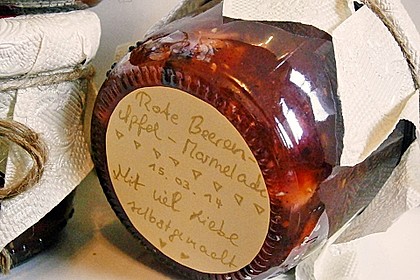 Rote Beeren-
Apfel-Marmelade
15.03.14
Mit viel Liebe
selbstgemacht